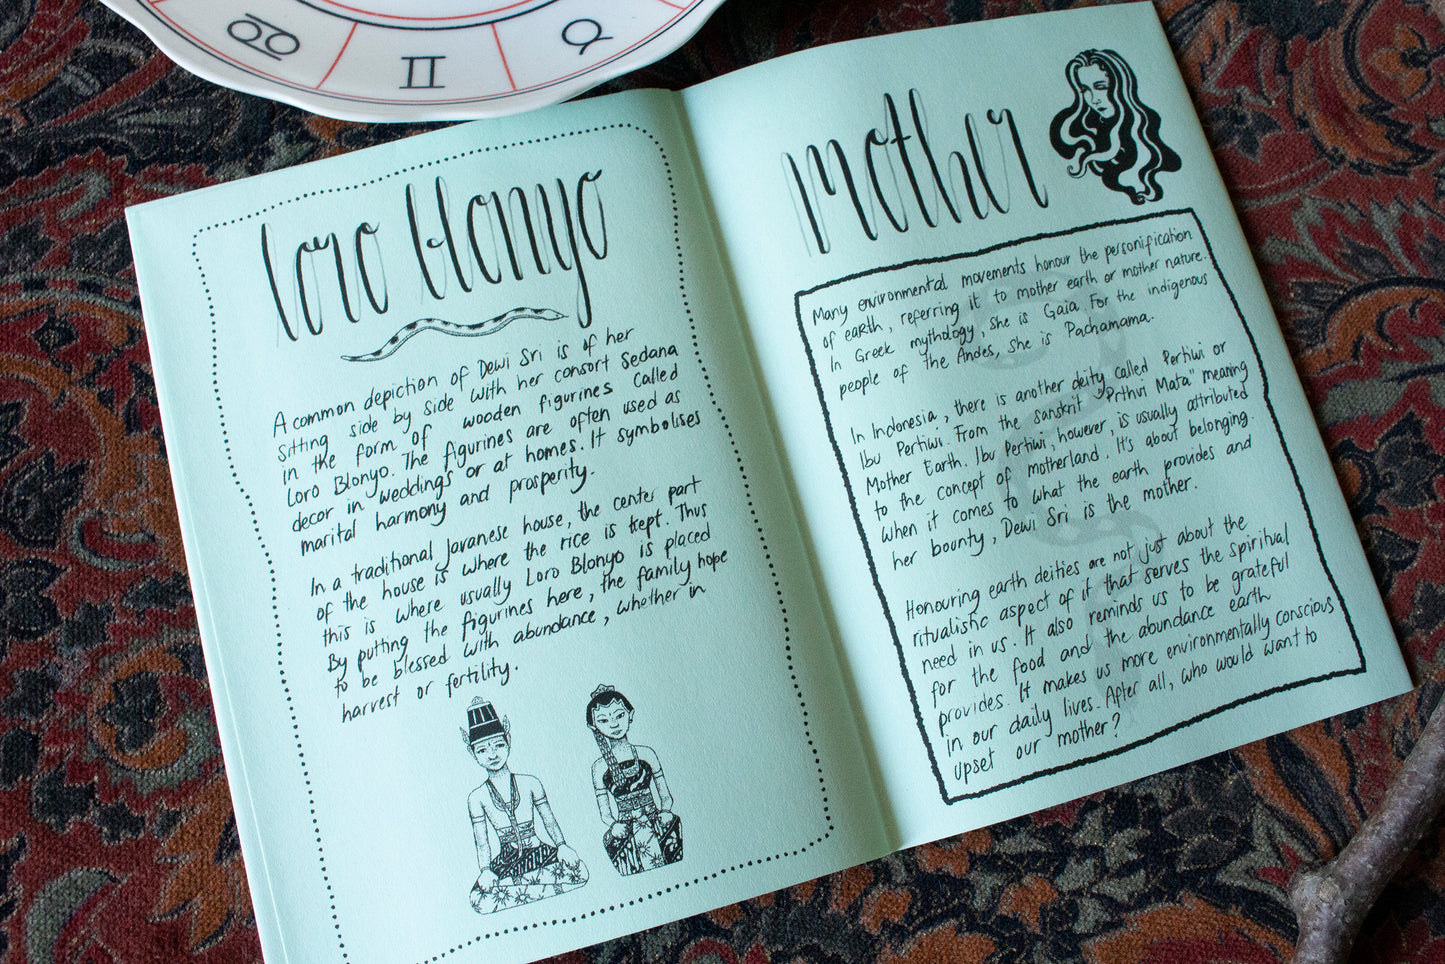 ♋ ♊ ♉
loro blonyo
A common depiction of Dewi Sri is of her
sitting side by side with her consort Sedana
in the form of wooden figurines called
Loro Blonyo. The figurines are often used as
decor in weddings or at homes. It symbolises
marital harmony and prosperity.
In a traditional Javanese house, the center part
of the house is where the rice is kept. Thus
this is where usually Loro Blonyo is placed
By putting the figurines here, the family hope
to be blessed with abundance, whether in
harvest or fertility.
mother
Many environmental movements honour the personification
of earth, referring it to mother earth or mother nature.
In Greek mythology, she is Gaia. For the indigenous
people of the Andes, she is Pachamama.
In Indonesia, there is another deity called Pertiwi or
Ibu Pertiwi. From the sanskrit "Prthvi Mata" meaning
Mother Earth. Ibu Pertiwi, however, is usually attributed
to the concept of motherland. It's about belonging.
When it comes to what the earth provides and
her bounty, Dewi Sri is the mother.
Honouring earth deities are not just about the
ritualistic aspect of it that serves the spiritual
need in us. It also reminds us to be grateful
for the food and the abundance earth
provides. It makes us more environmentally conscious
in our daily lives. After all, who would want to
upset our mother?